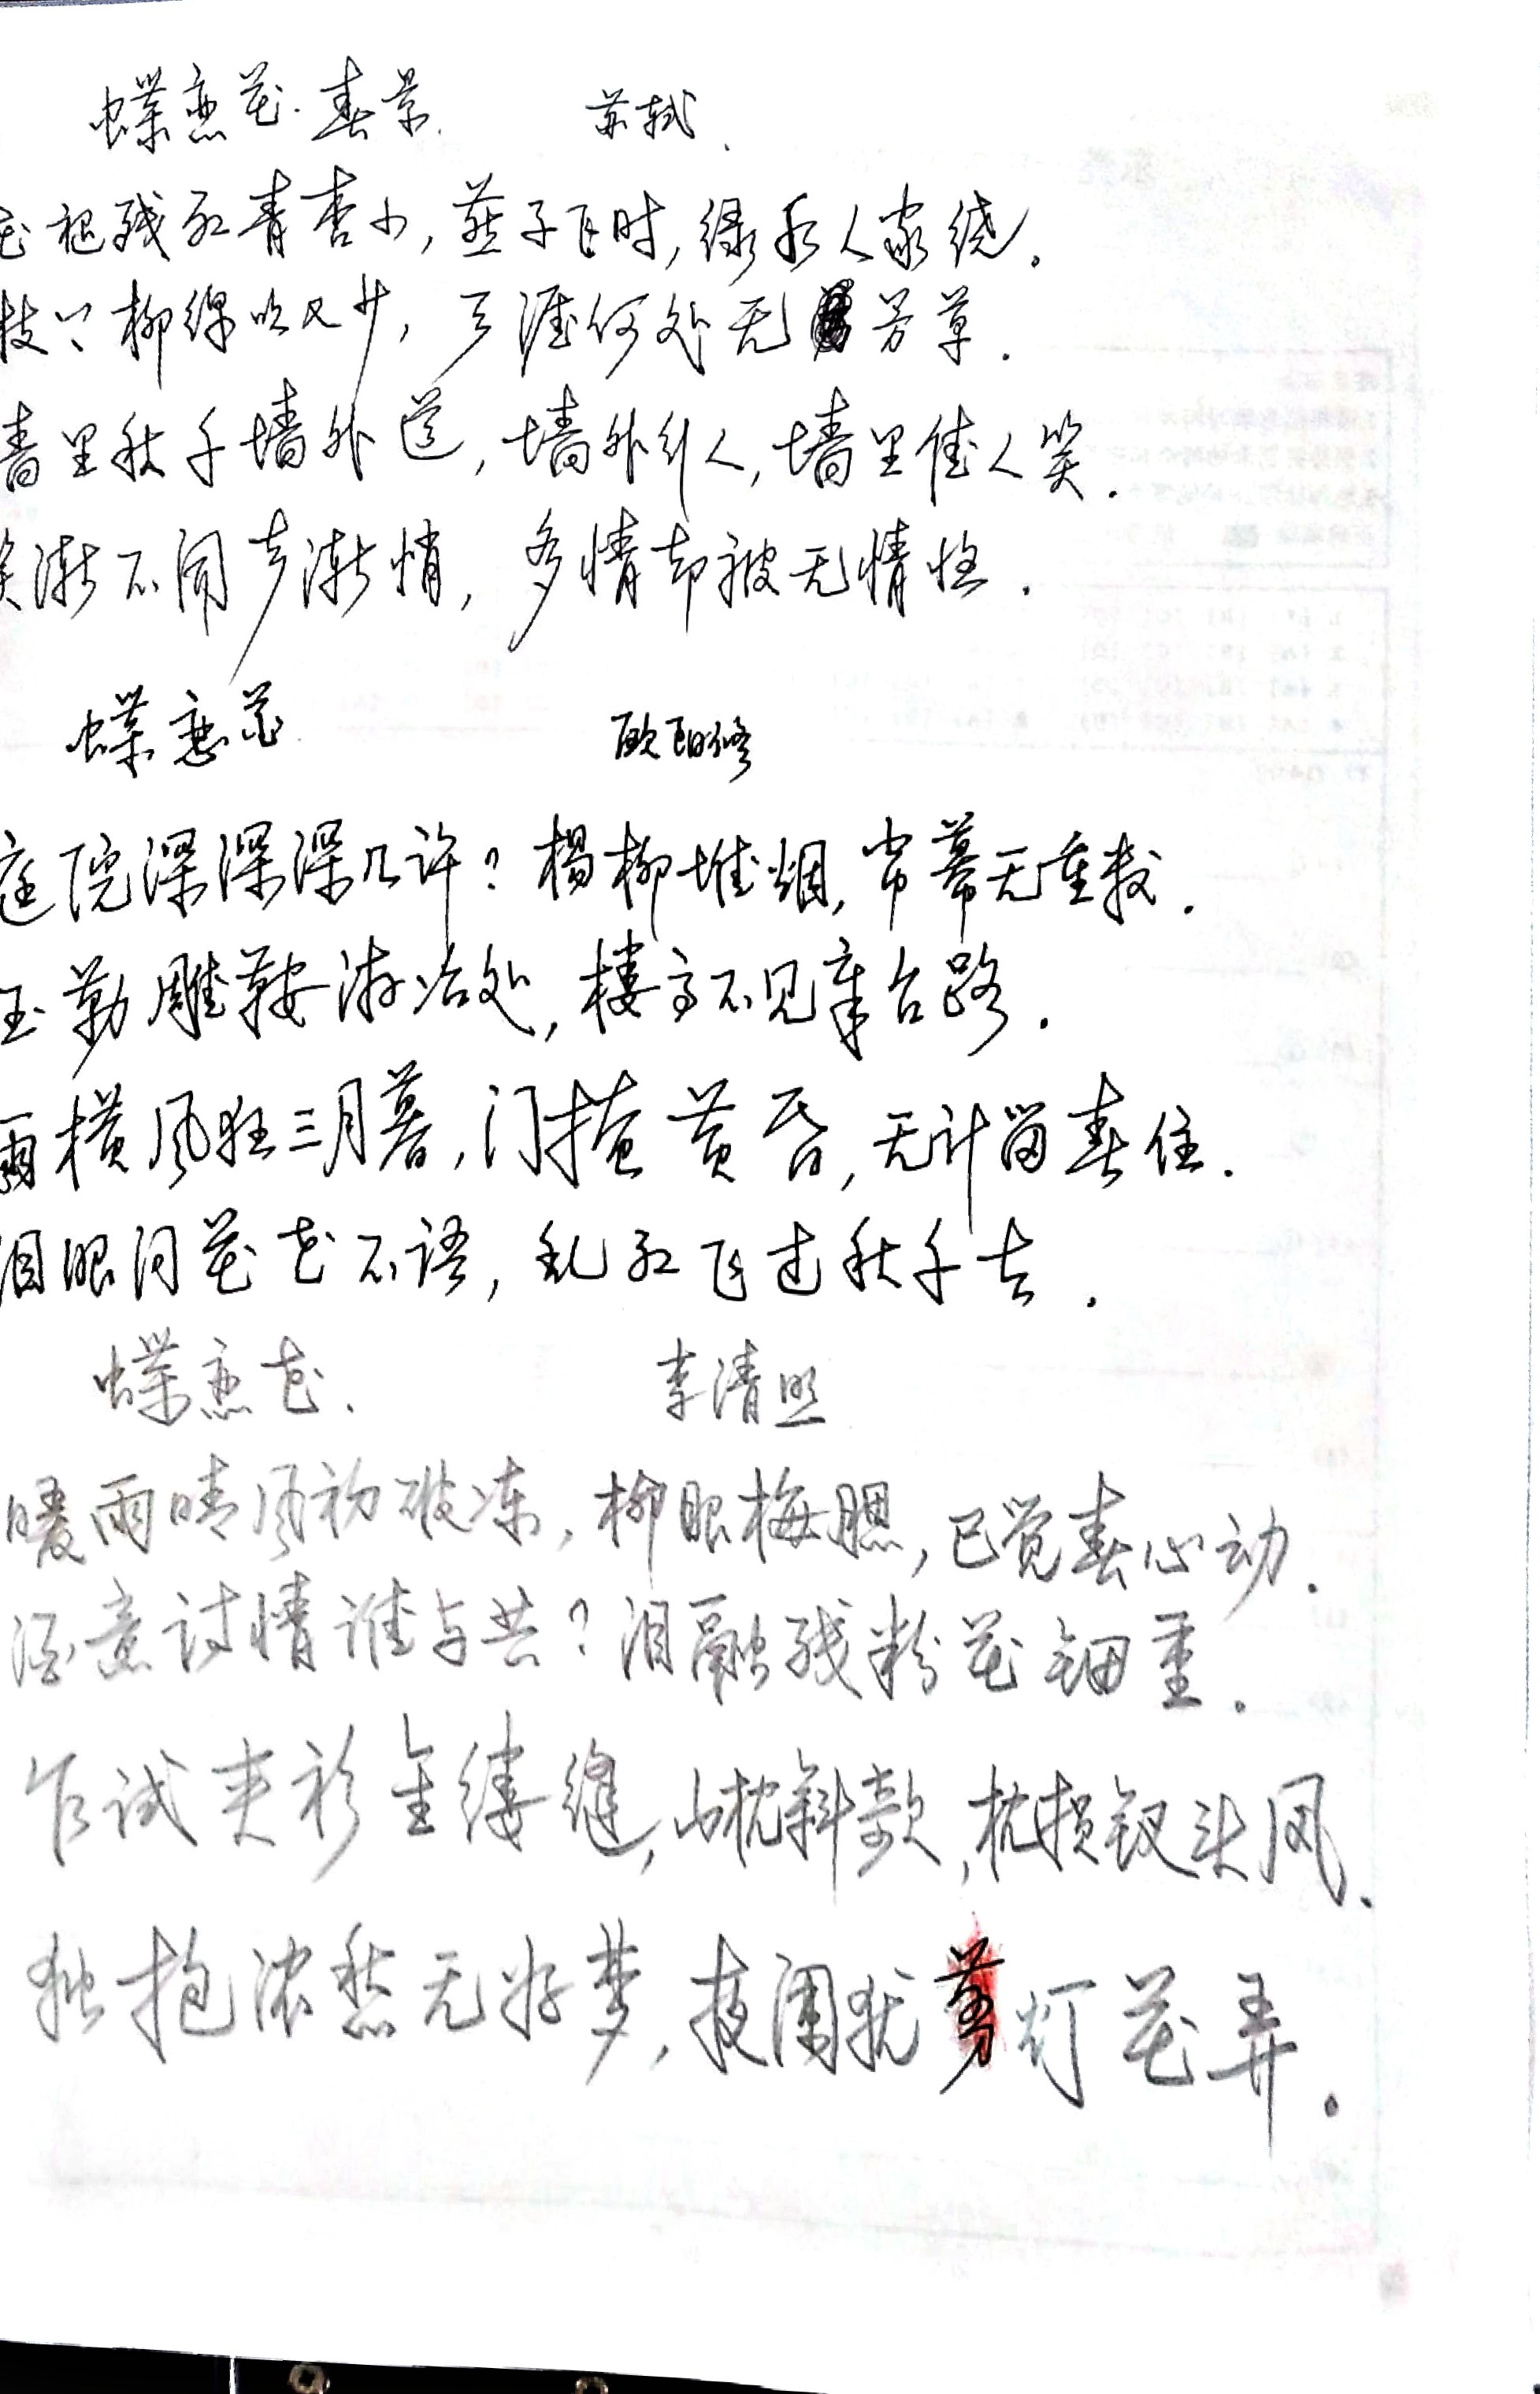 蝶恋花·春景 苏轼
花褪残红青杏小,燕子飞时,绿水人家绕。
枝上柳绵吹又少,天涯何处无芳草.
墙里秋千墙外道,墙外行人,墙里佳人笑.
笑渐不闻声渐悄,多情却被无情恼.
蝶恋花 欧阳修
庭院深深深几许?杨柳堆烟,帘幕无重数.
玉勒雕鞍游冶处,楼高不见章台路.
雨横风狂三月暮,门掩黄昏,无计留春住.
泪眼问花花不语,乱红飞过秋千去.
蝶恋花. 李清照
暖雨晴风初破冻,柳眼梅腮,已觉春心动.
酒意诗情谁与共?泪融残粉花钿重.
乍试夹衫金缕缝,山枕斜欹,枕损钗头凤.
独抱浓愁无好梦,夜阑犹剪灯花弄.